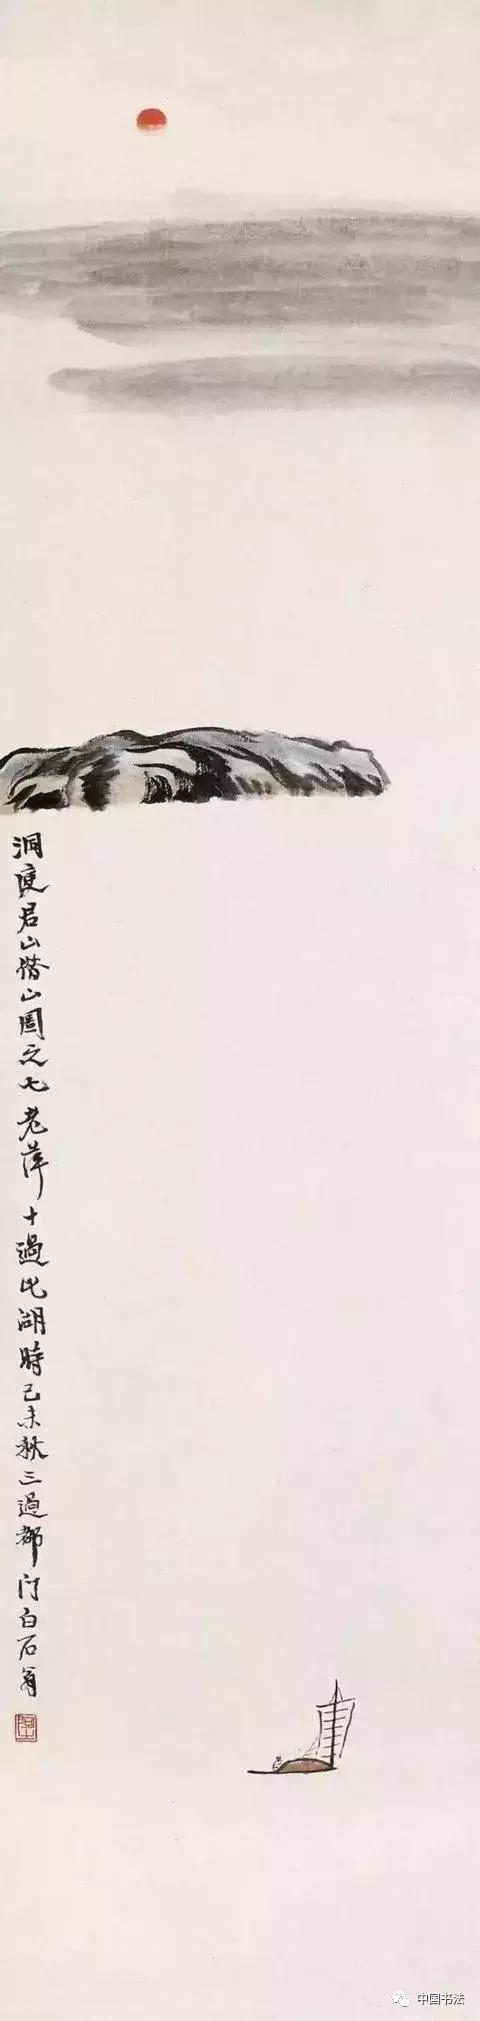 洞庭君山借山圖之七老萍十過此湖時己未秋三過都门白石翁
中国书法